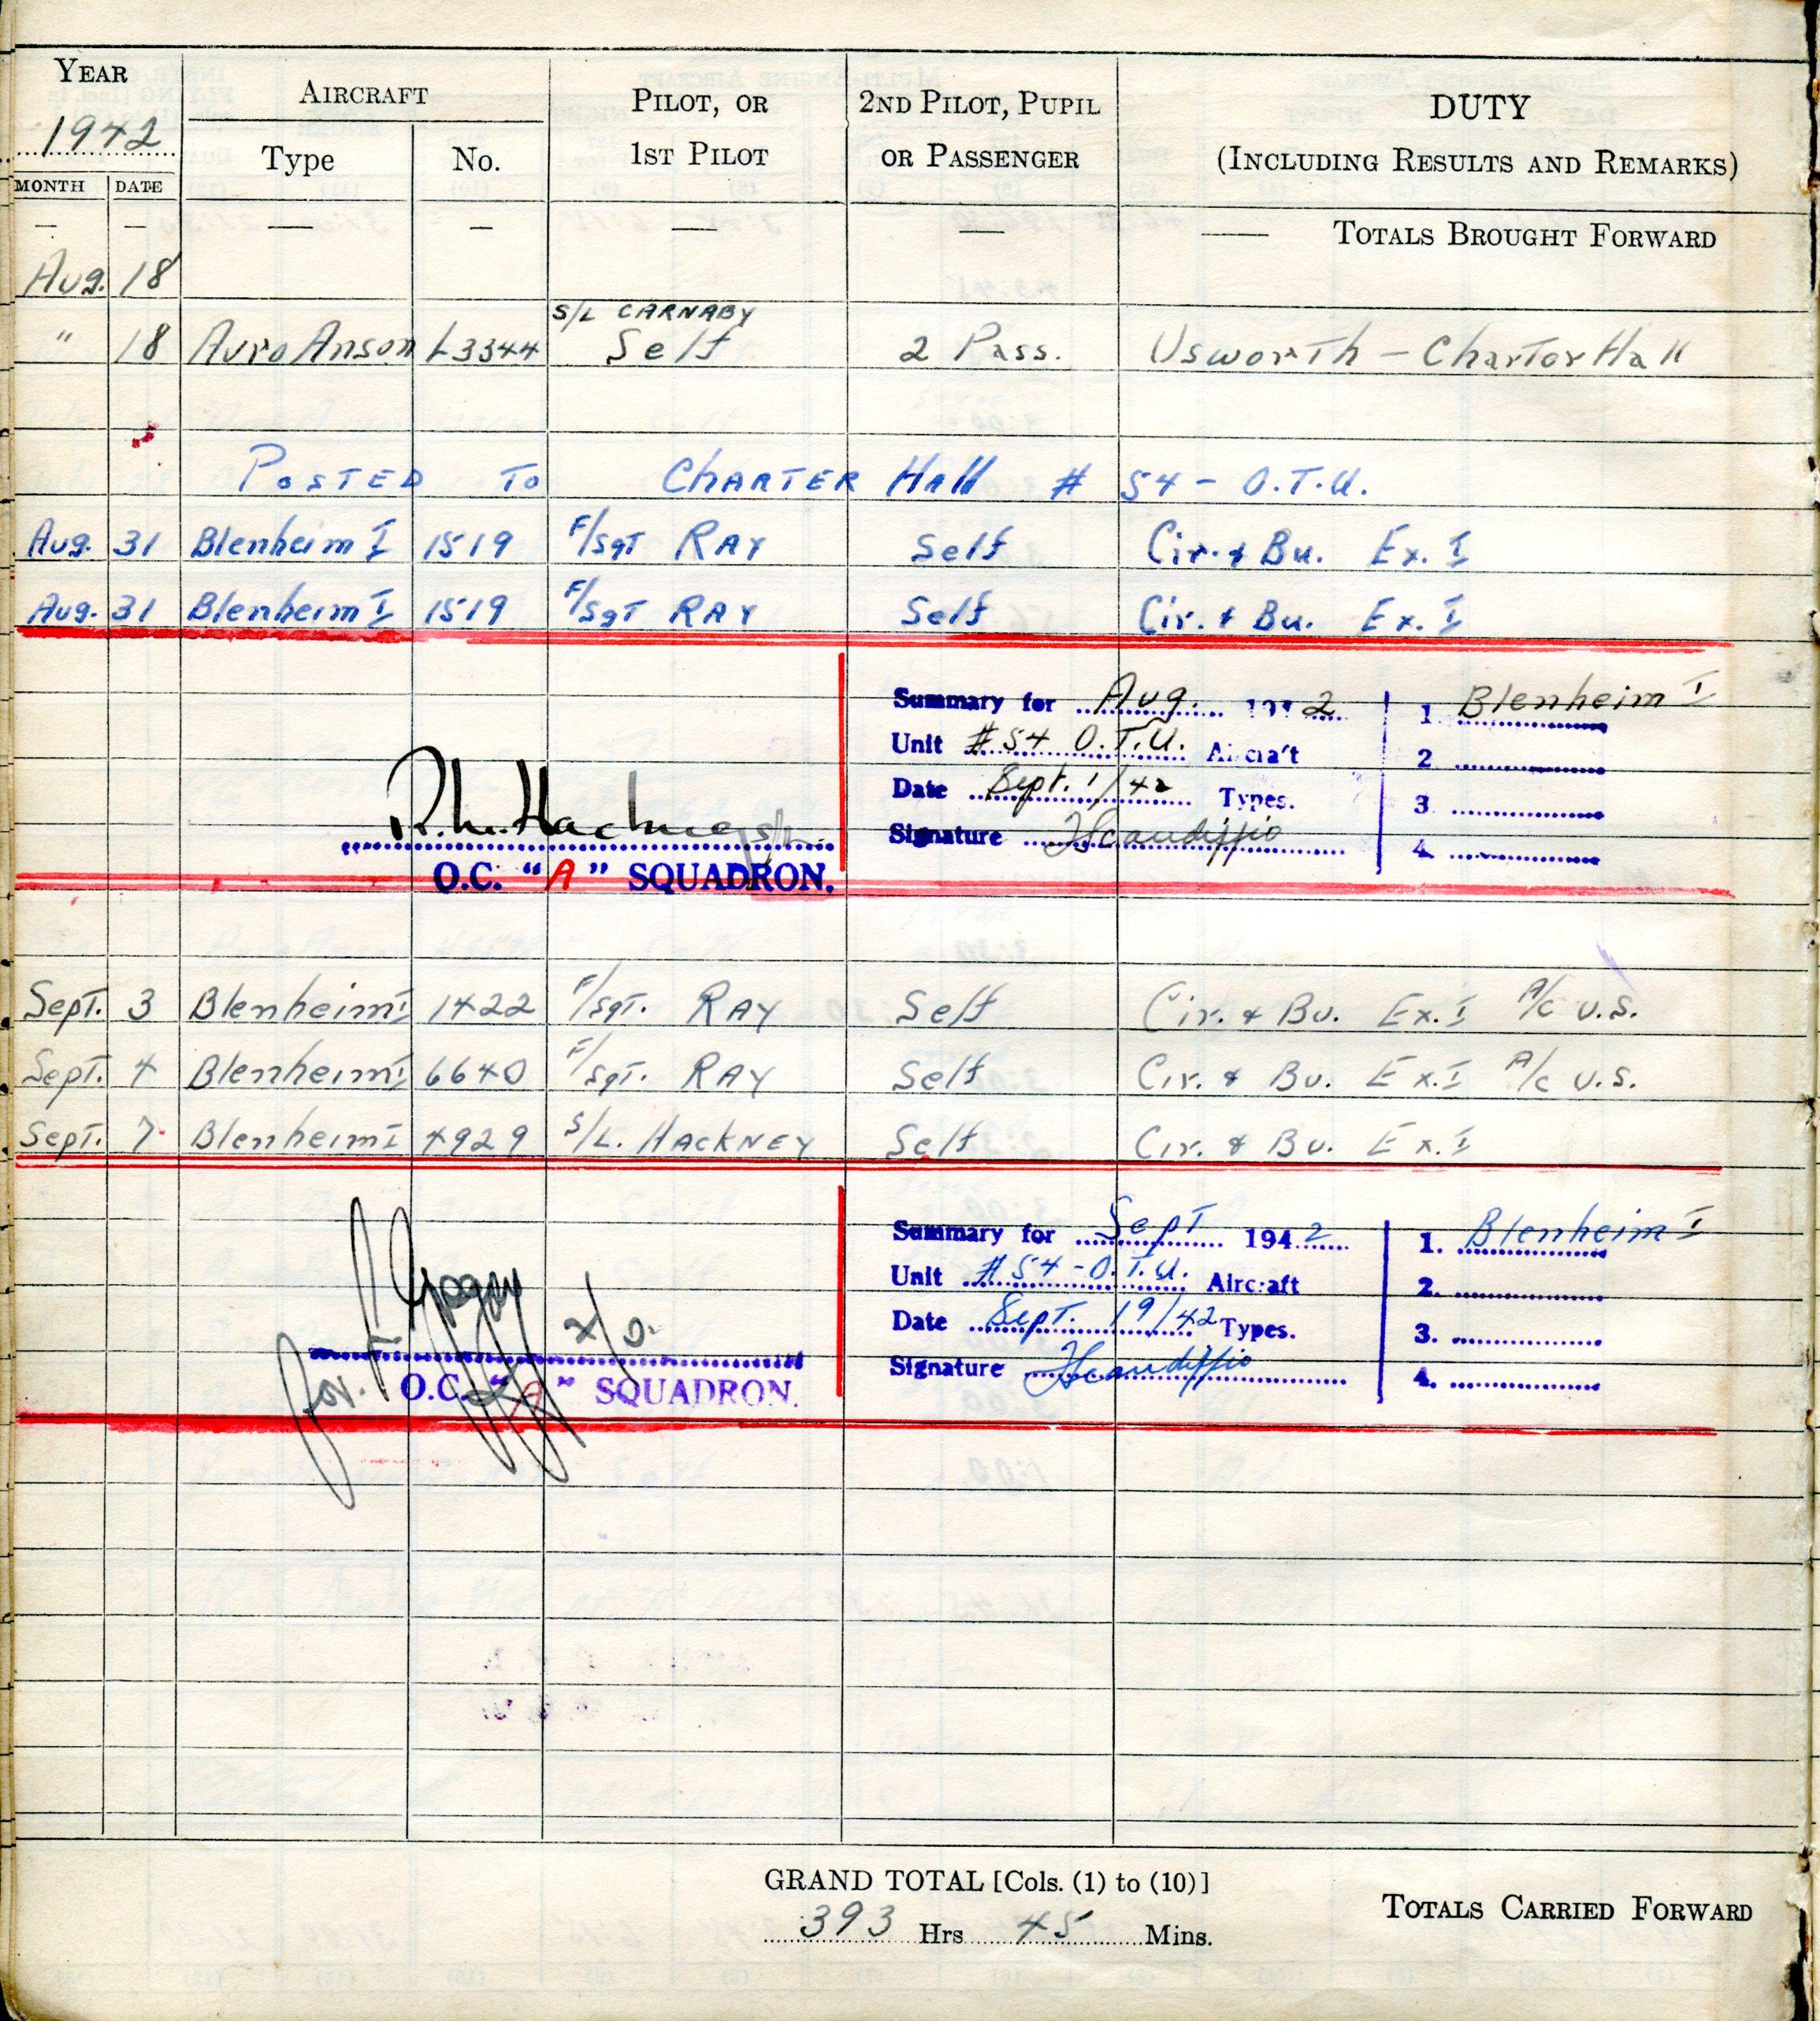 YEAR 1942 AIRCRAFT PILOT, OR 1ST PILOT 2ND PILOT, PUPIL OR PASSENGER DUTY (INCLUDING RESULTS AND REMARKS)
MONTH DATE Type No.
— — — — — — — TOTALS BROUGHT FORWARD
Aug. 18
S/L CARNABY
" 18 Avro Anson L3344 Self 2 Pass. Usworth - CharterHall
POSTED TO CHARTER HALL # 54 - O.T.U.
Aug. 31 Blenheim I 1519 F/Sgt RAY Self Cir. & Bu. Ex. I
Aug. 31 Blenheim I 1519 F/Sgt RAY Self Cir. & Bu. Ex. I
Summary for Aug. 1942 1. Blenheim I
Unit # 54 O.T.U. Aircraft 2
Date Sept. 1/42 Types. 3
Signature 4.
O.C. "A" SQUADRON.
Sept. 3 Blenheim I 1422 F/Sgt. RAY Self Cir. & Bu. Ex. I A/c U.S.
Sept. 4 Blenheim I 6640 F/Sgt. RAY Self Cir. & Bu. Ex. I A/c U.S.
Sept. 7 Blenheim I 4929 S/L. HACKNEY Self Cir. & Bu. Ex. I
Summary for Sept 1942 1. Blenheim I
Unit # 54 - O.T.U. Aircraft 2.
Date Sept. 19/42 Types. 3.
Signature 4.
for O.C. "A" SQUADRON.
GRAND TOTAL [Cols. (1) to (10)]
393 Hrs 45 Mins.
TOTALS CARRIED FORWARD